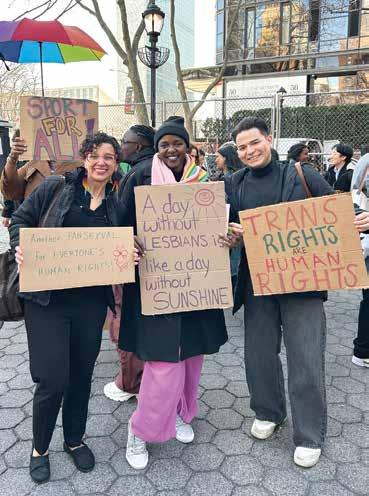 SPORT
FOR
ALL!
Another PANSEXUAL
for EVERYONE'S
HUMAN RIGHTS!
A day
without
LESBIANS is
like a day
without
SUNSHINE
TRANS
RIGHTS
ARE
HUMAN
RIGHTS